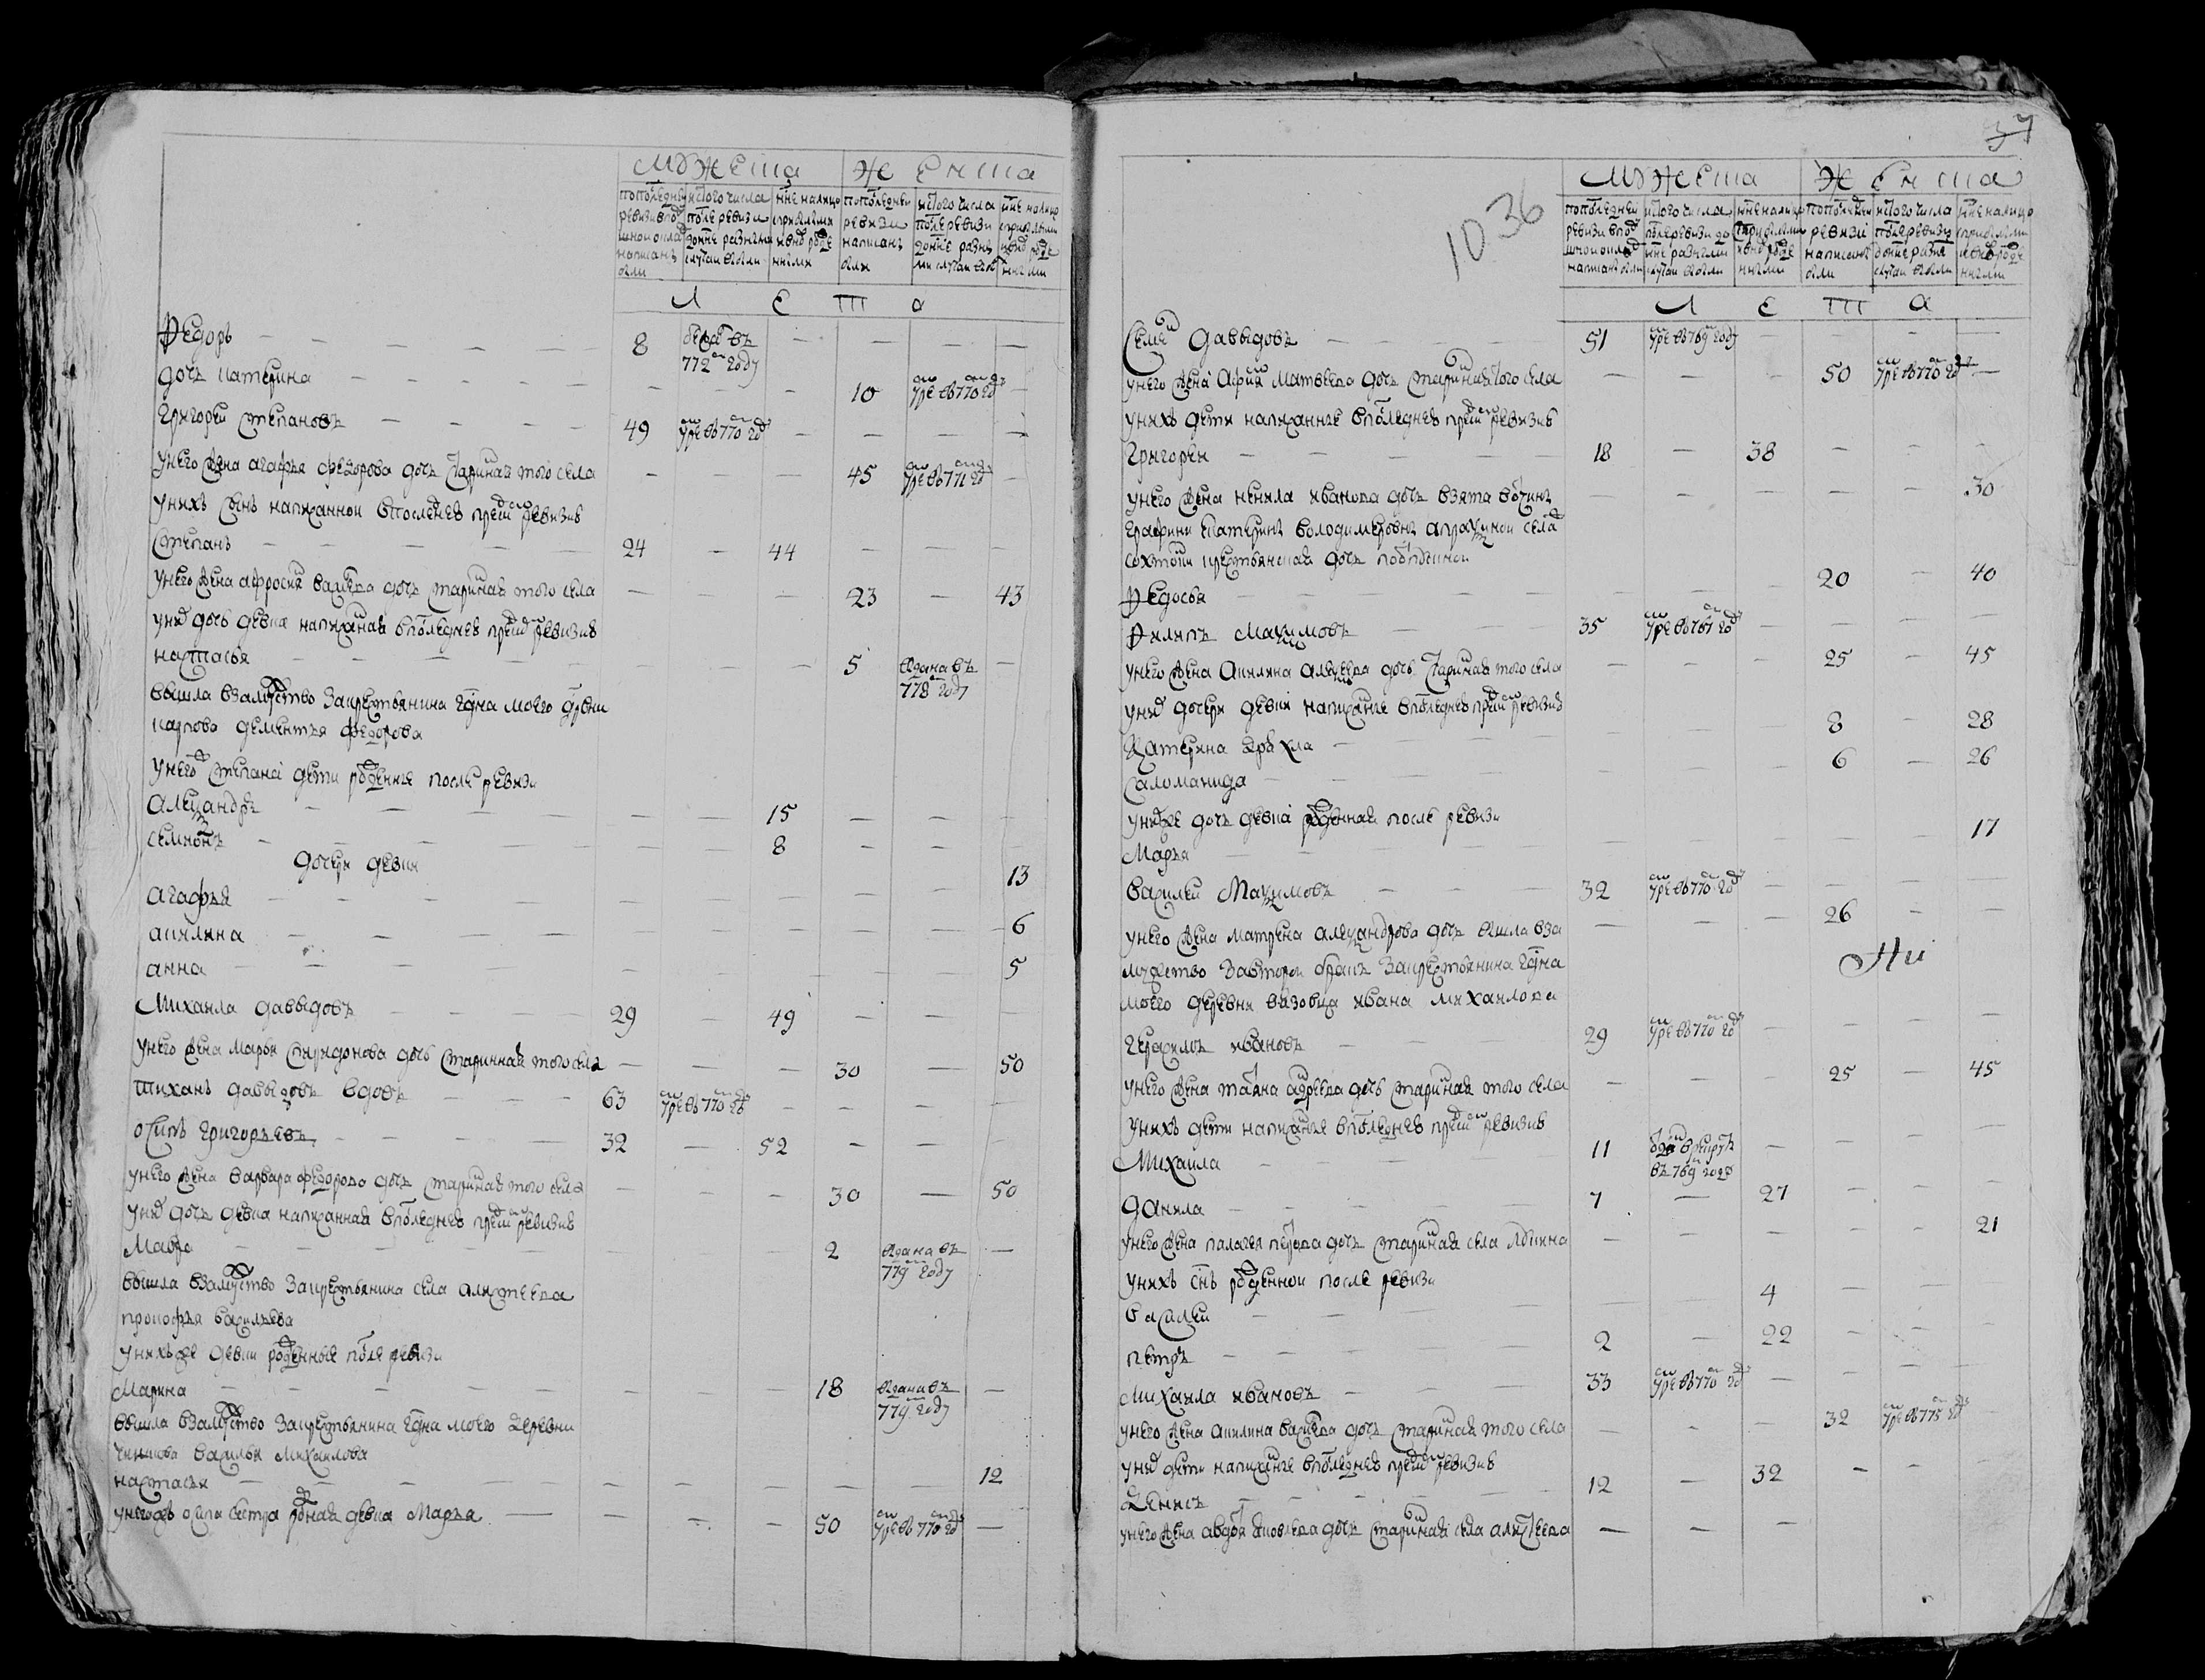 мужеска женска
по последней ревизии в подушной оклад написаны были
ис того числа после ревизии до ныне разными случаи выбыли
ныне на лицо с прибылыми и вновь рожденными
по последней ревизии написаны были
ис того числа после ревизии до ныне разными случаи выбыли
ныне на лицо с прибылыми и вновь рожденными
Л Е Т А
Федоръ — 8 бежалъ въ 772м году — — — —
дочь катерина — — — 10 умре въ 770м году —
Григорей степановъ — 49 умре въ 770м году — — — —
у него жена агафья федорова дочь старинная того села — — — 45 умре въ 771м году —
у нихъ сынъ написанной в последней пред сею ревизии
Степанъ — 24 — 44 — — —
у него жена афросинья васильева дочь старинная того села — — — 23 — 43
у них дочь девка написанная в последней пред сею ревизии
настасья — — — 5 отдана въ 778м году —
вышла в замужство за крестьянина господина моего деревни
карпова дементья федорова
у него степана дети рожденные после ревизи
Александръ — — — 15 — — —
семионъ — — — 8 — — —
дочери девки
агафья — — — — — 13
акилина — — — — — 6
анна — — — — — 5
Михаила давыдовъ — 29 — 49 — — —
у него жена марья спиридонова дочь старинная того села — — — 30 — 50
тиханъ давыдовъ вдовъ — 63 умре въ 770м году — — — —
осипъ григорьевъ — 32 — 52 — — —
у него жена варвара федорова дочь старинная того села — — — 30 — 50
у них дочь девка написанная в последней пред сею ревизии
Мавра — 2 отдана въ 779м году —
вышла в замужство за крестьянина села
прокофья васильева
у них же девки рожденные после ревизи
марина — — — 18 отдана въ 779м году —
вышла в замужство за крестьянина господина моего деревни
василья михаилова
настасья — — — — — 12
у него ж осипа сестра родная девка Марья — — — 50 умре въ 770м году —
37
1036
мужеска женска
по последней ревизии в подушной оклад написаны были
ис того числа после ревизи до ныне разными случаи выбыли
ныне на лицо с прибылыми и вновь рожденными
по последней ревизи написаны были
ис того числа после ревизи до ныне разными случаи выбыли
ныне на лицо с прибылыми и вновь рожденными
Л Е Т А
Семен Давыдовъ — 51 умре въ 769м году — — —
у него жена матвеева дочь старинная того села — — — 50 умре въ 770м году —
у нихъ дети написанные в последней пред сею ревизии
Григореи — 18 — 38 — — —
у него жена ненила иванова дочь взята в вотчине — — — — — 30
графини катерине володимеровне апраксиной села
крестьянская дочь
Федосья — — — 20 — 40
Филипъ Максимовъ — 35 умре въ 767м году — — — —
у него жена Акилина алексеева дочь старинная того села — — — 25 — 45
у них дочери девки написанные в последней пред сею ревизии
Катерина — — — 8 — 28
Саломанида — — — 6 — 26
у них же дочь девка рожденная после ревизи
Марья — — — — — 17
Василеи Максимовъ — 32 умре въ 770м году — — — —
у него жена матрена александрова дочь вышла в за — — — 26 — —
мужество во второй бракъ за крестьянина господина
моего деревни ивана михаилова
Герасимъ ивановъ — 29 умре въ 770м году — — — —
у него жена татьяна андреева дочь старинная того села — — — 25 — 45
у нихъ дети написанные в последней пред сею ревизии
Михаила — 11 отдан в рекруты въ 769м году — — — —
Данила — 7 — 27 — — —
у него жена палагея петрова дочь старинная села — — — — — 21
у нихъ сынъ рожденной после ревизи
василеи — — — 4 — — —
петръ — 2 — 22 — — —
Михаила ивановъ — 33 умре въ 770м году — — — —
у него жена акилина васильева дочь старинная того села — — — 32 умре въ 775м году —
у них дети написанные в последней пред сею ревизии
Денисъ — 12 — 32 — — —
у него жена авдотья яковлева дочь старинная села — — —